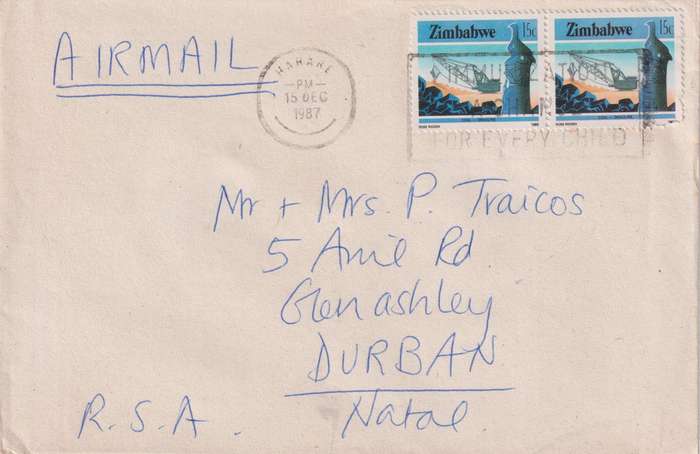 AIRMAIL
HARARE
PM
15 DEC
1987
Zimbabwe 15c
Zimbabwe 15c
FOR EVERY CHILD
Mr + Mrs. P. Traicos
5 Anie Rd
Glenashley
DURBAN
Natal.
R.S.A.